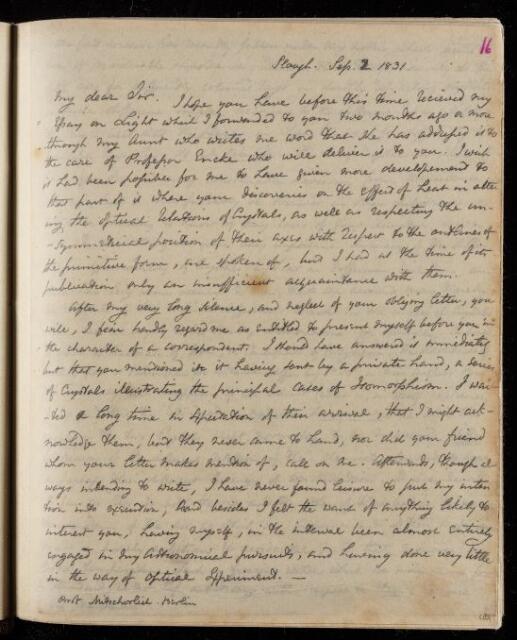 16
Slough. Sep. 2 1831
My dear Sir. I hope you have before this time recieved my
Essay on Light which I forwarded to you two months ago or more
through my Aunt who writes me word that she has addressed it to
the care of Professor Encke who will deliver it to you. I wish
it had been possible for me to have given more developement to
that part of it where your discoveries on the effect of heat in alter
ing the optical relations of Crystals, as well as respecting the un-
-symmetrical position of their axes with respect to the outlines of
the primitive form, are spoken of, but I had at the time of its
publication only an insufficient acquaintance with them.
After my very long silence, and neglect of your obliging letter, you
will, I fear hardly regard me as entitled to present myself before you in
the character of a correspondent. I should have answered it immediately
but that you mentioned in it having sent by a private hand, a series
of Crystals illustrating the principal cases of Isomorphism. I wai-
-ted a long time in expectation of their arrival, that I might ack-
nowledge them, but they never came to hand, nor did your friend
whom your letter makes mention of, call on me. Afterwards, though al
ways intending to write, I have never found leisure to put my inten
tion into execution, and besides I felt the want of anything likely to
interest you, having myself, in the interval been almost entirely
engaged in my Astronomical pursuits, and having done very little
in the way of Optical Experiment. —
Prof Mitscherlich Berlin